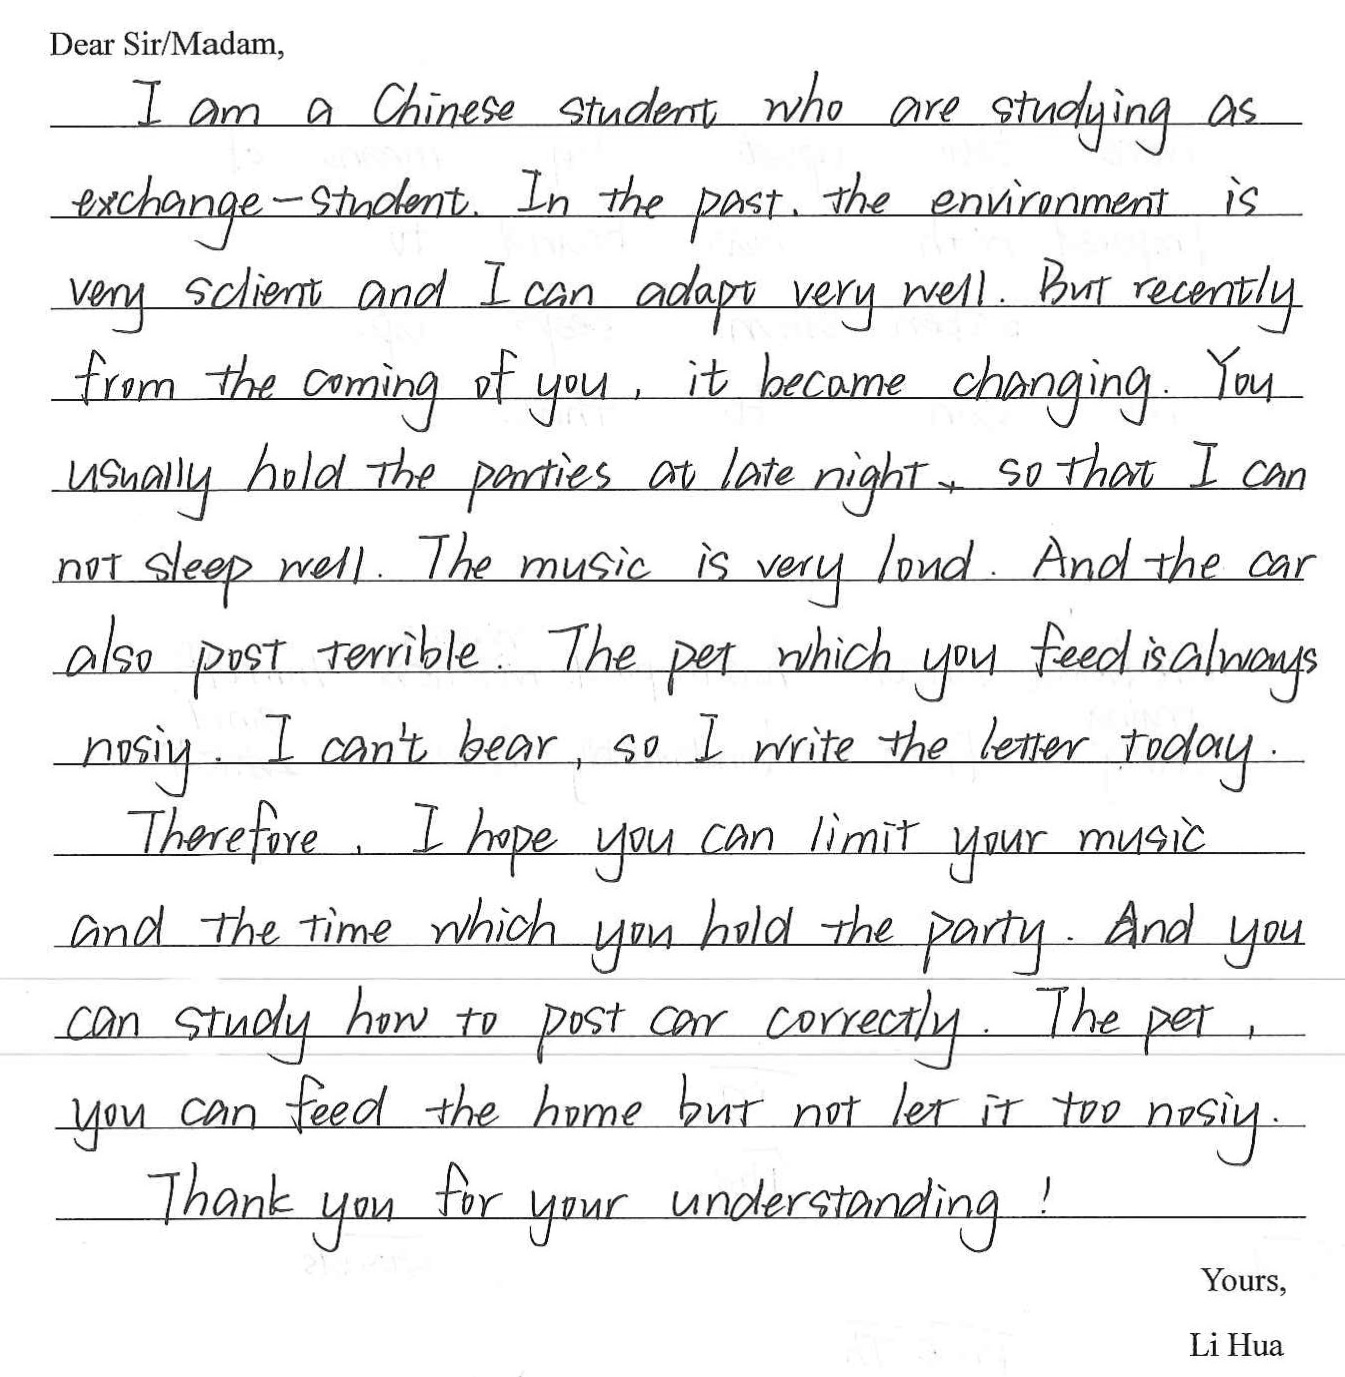 Dear Sir/Madam,
I am a Chinese student who are studying as
exchange-student. In the past, the environment is
very sclient and I can adapt very well. But recently
from the coming of you, it became changing. You
usually hold the parties at late night, so that I can
not sleep well. The music is very loud. And the car
also post terrible. The pet which you feed is always
nosiy. I can't bear, so I write the letter today.
Therefore, I hope you can limit your music
and the time which you hold the party. And you
can study how to post car correctly. The pet,
you can feed the home but not let it too nosiy.
Thank you for your understanding!
Yours,
Li Hua